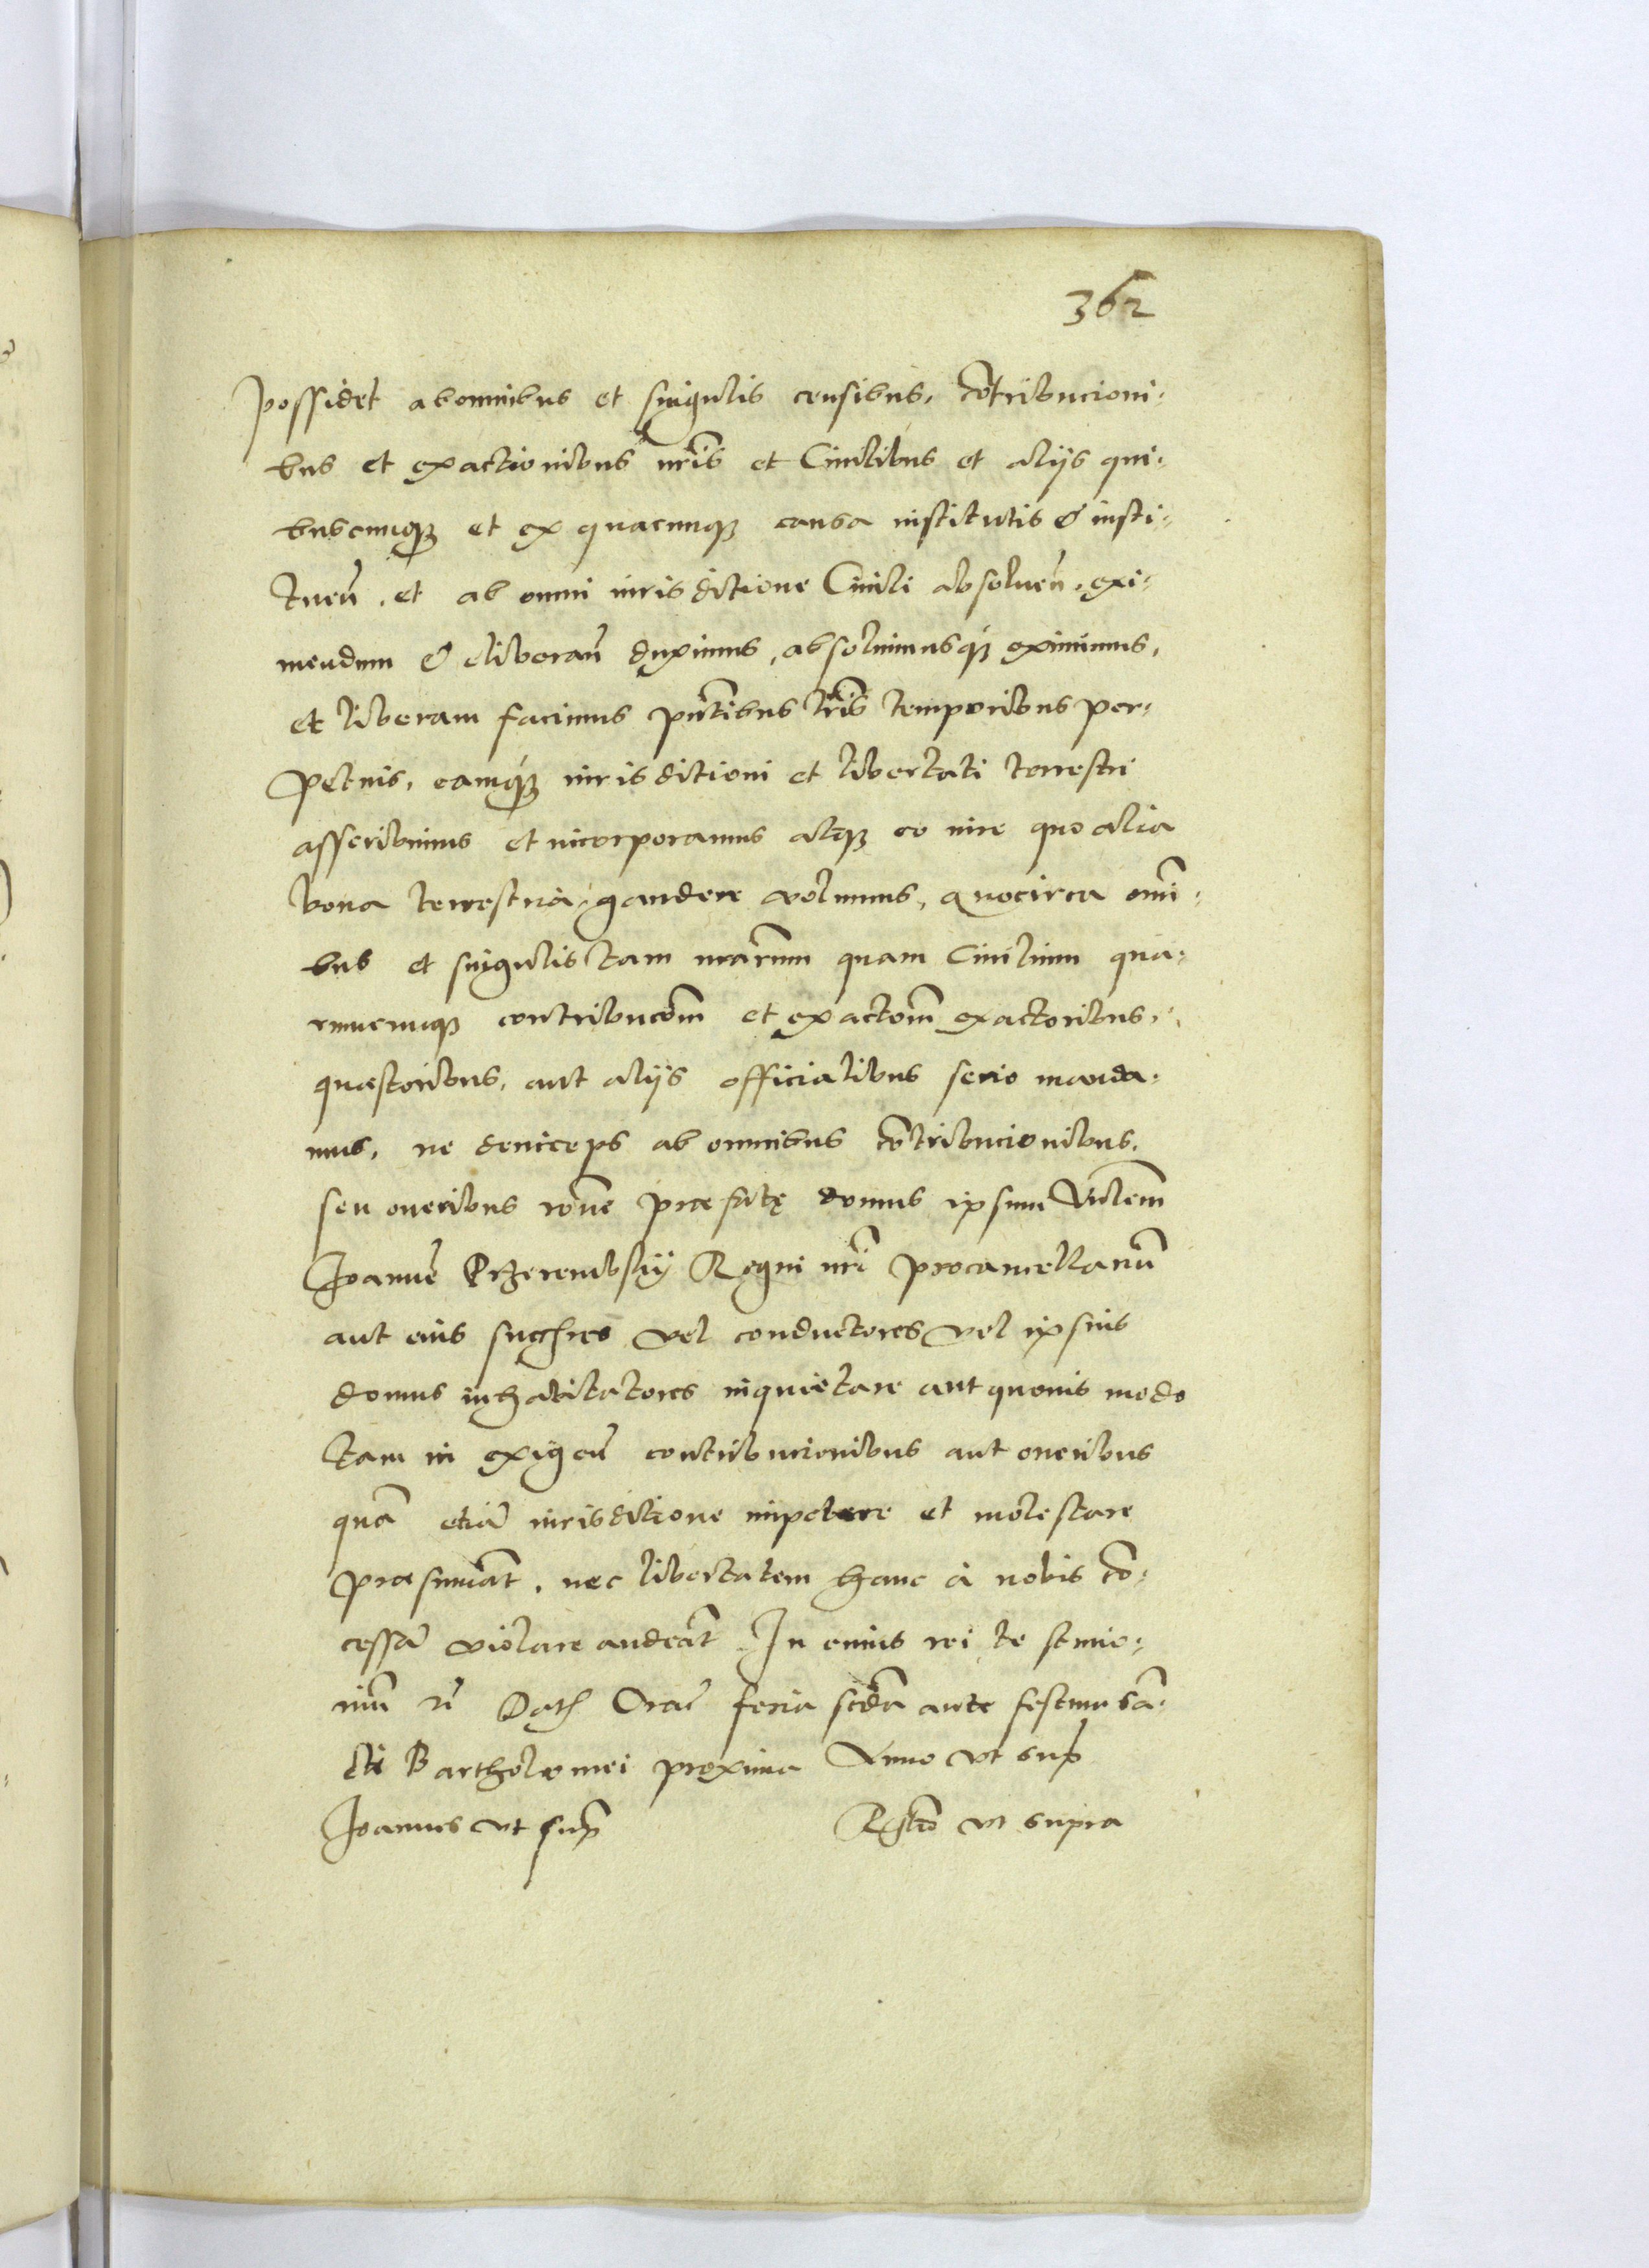 362
possidet ab omnibus et singulis censibus, cõtribucioni-
bus et exactionibus nr̃is et Ciuilibus et alijs qui-
buscunq; et ex quacunq; causa institutis & insti-
tuen̄, et ab omni iurisditione Ciuili absoluen̄, exi-
mendum & liberan̄ duximus, absoluimusq; eximimus,
et liberam facimus pn̄tibus lr̃is temporibus per-
petuis, eamq; iurisditioni et libertati terrestri
asscribimus et incorporamus atq; eo iure quo alia
bona terrestria, gaudere volumus, quocirca om̄i-
bus et singulis tam nr̃arum quam Ciuilium qua-
rumcunq; contribucõm et exactiõm exactoribus,
quæstoribus, aut alijs officialibus serio manda-
mus, ne deniceps ab omnibus cõtribucionibus,
seu oneribus rõne præfatę domus ipsum Vñlem
Joannẽ Przerembskij Regni nr̃i procancellariũ
aut eius succẽres vel conductores vel ipsius
domus inhabitatores inquietare aut quouis modo
tam in exigen̄ contribucionibus aut oneribus
quã etiã iurisditione impetere et molestare
præsumãt, nec libertatem hanc à nobis cõ-
cessã violare audeãt. In cuius rei testimo-
niũ rc̃ Datũ Crac̃ feria scd̃a ante festum sã-
cti Bartholomei proxima Anno vt sup̃
Joannes vt sup̃ Rl̃cõ vt supra